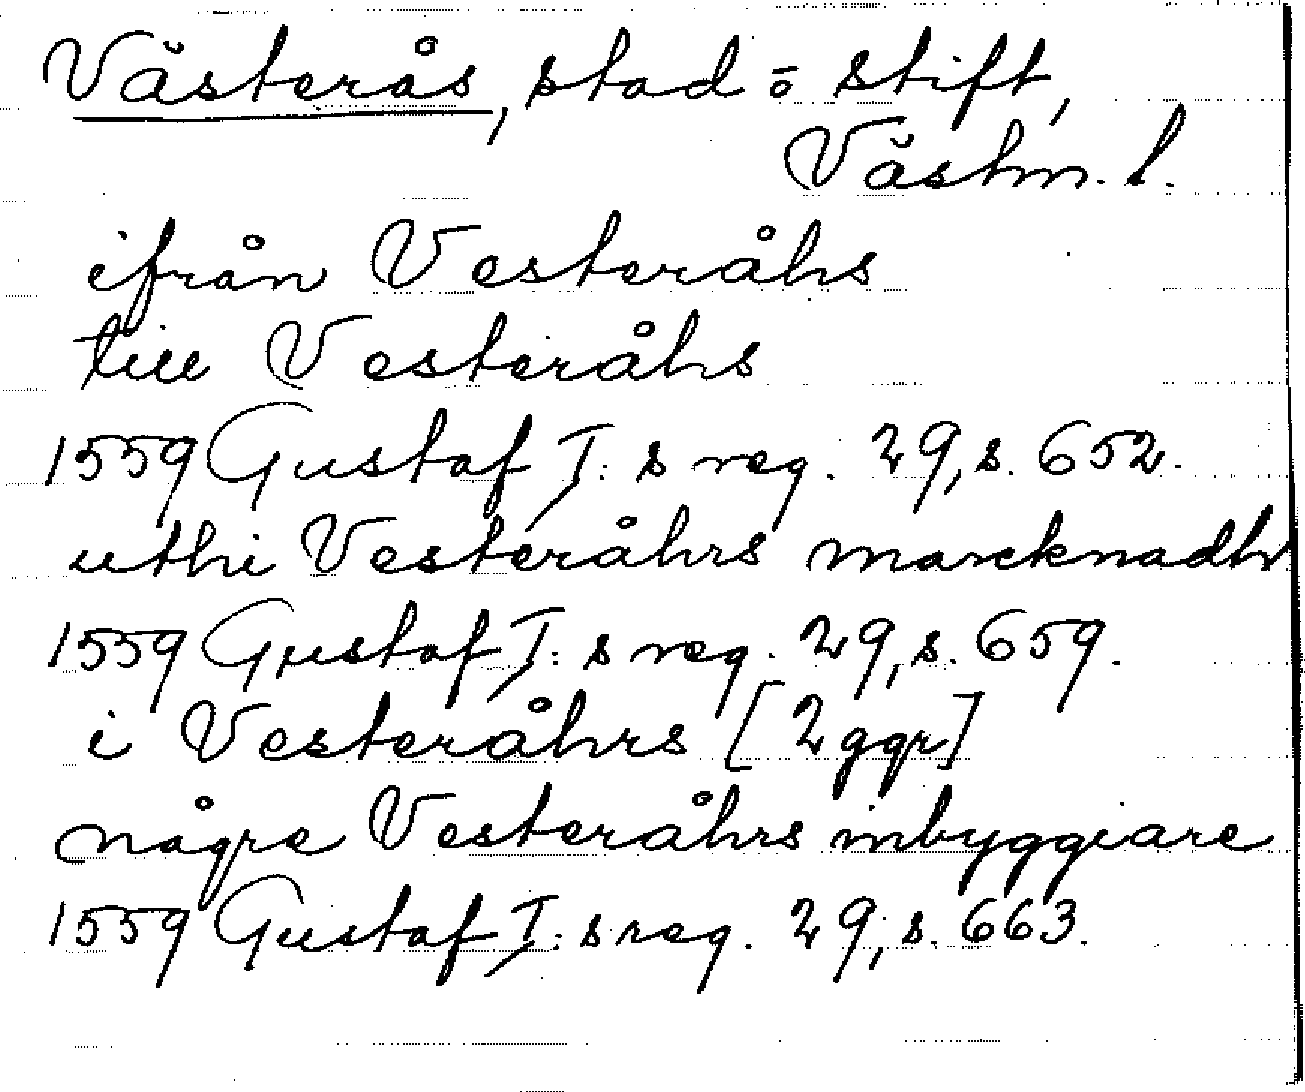 Västerås, stad o stift,
Västm. l.
ifrån Vesteråhs
till Vesteråhs
1559 Gustaf I:s reg. 29, s. 652.
uthi Vesteråhrs marcknadh
1559 Gustaf I:s reg. 29, s. 659.
i Vesteråhrs [2 ggr]
någre Vesteråhrs inbyggiare
1559 Gustaf I:s reg. 29, s. 663.